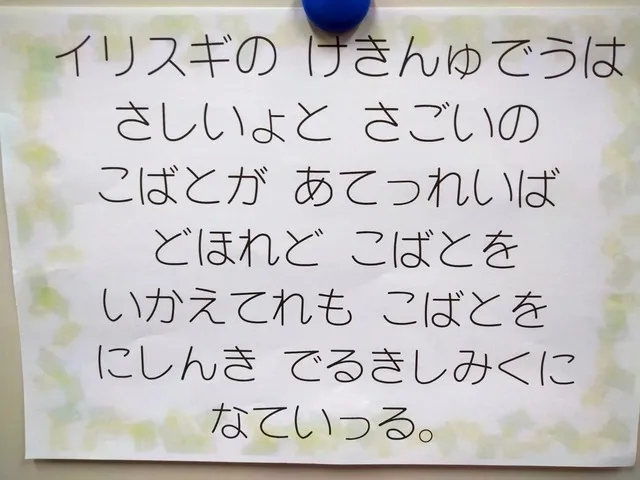 イリスギの けきんゅでうは
さしいょと さごいの
こばとが あてっれいば
どほれど こばとを
いかえてれも こばとを
にしんき でるきしみくに
なていっる。